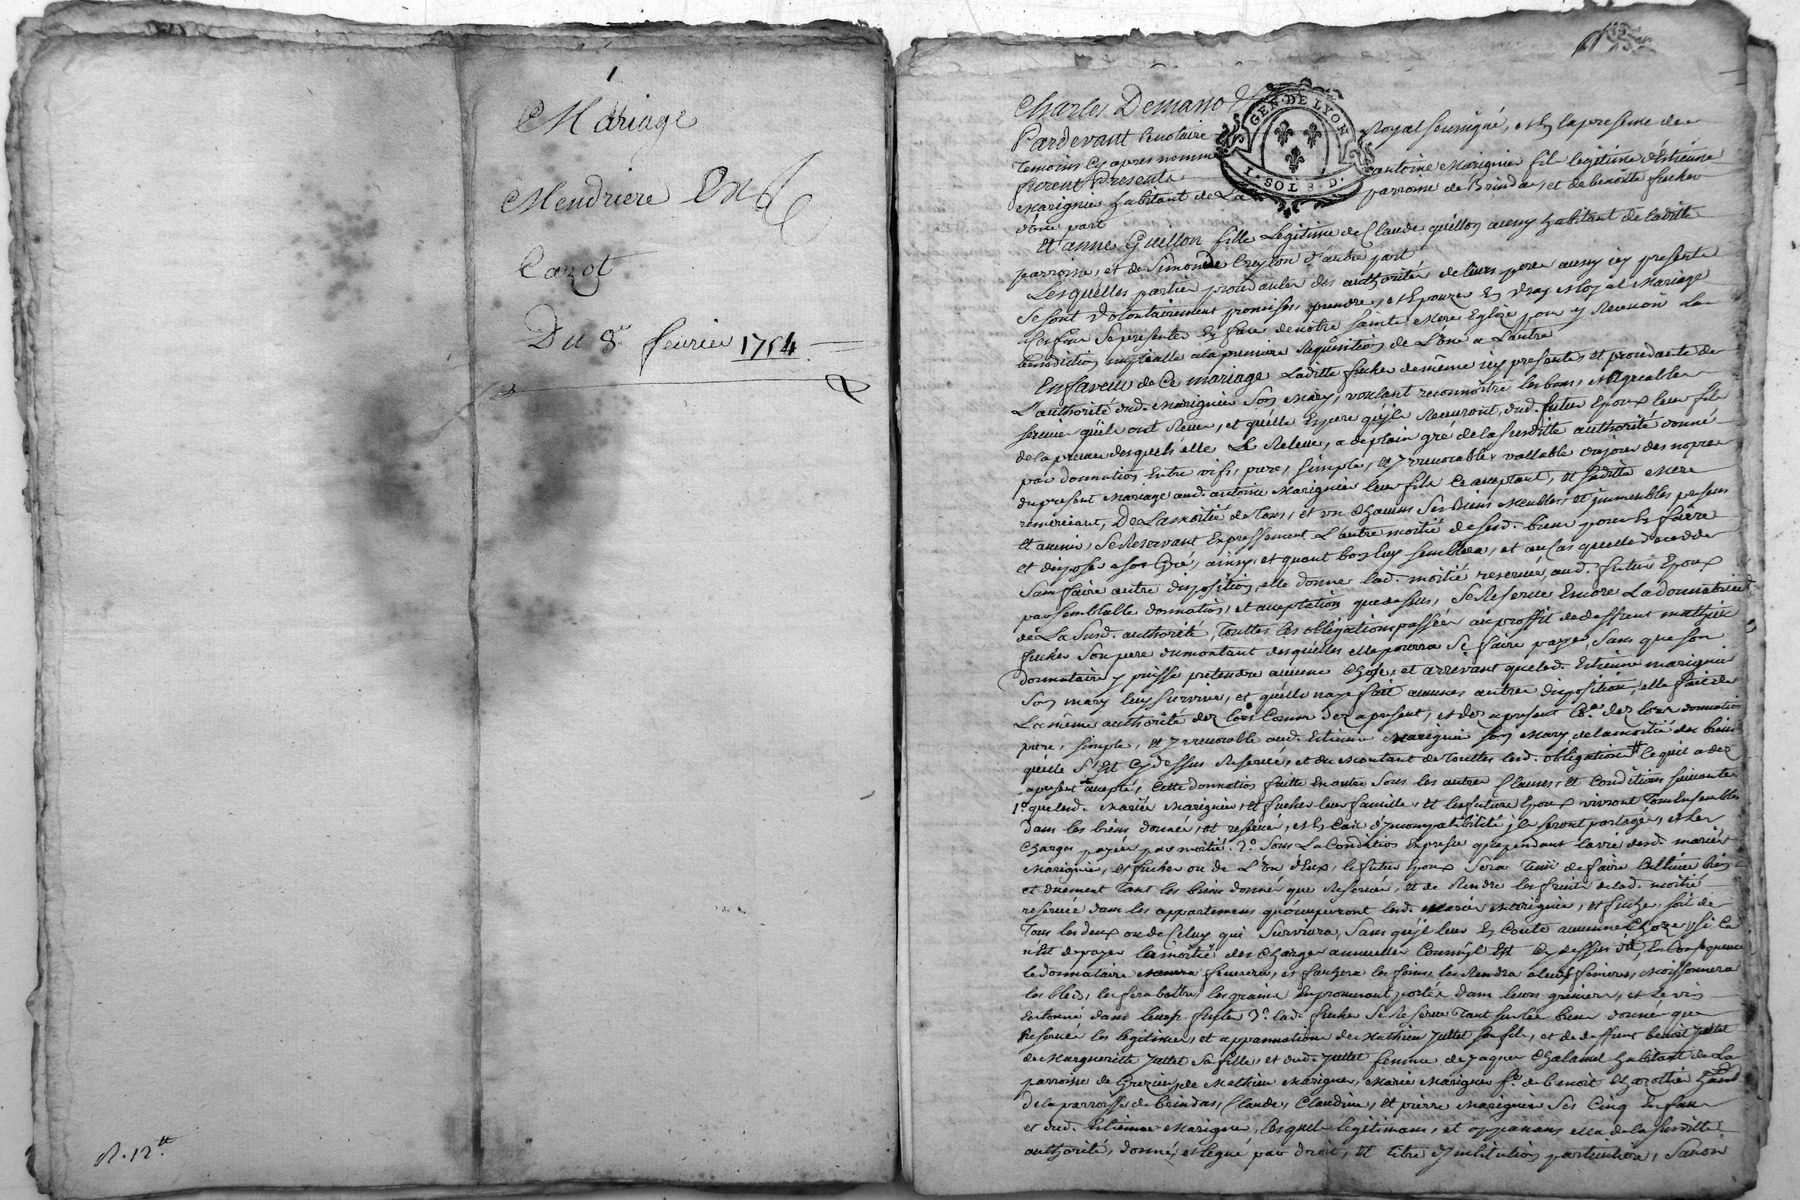 1
Mariage
Mendriere
Carot
Du 8e fevrier 1754
R. 12tt
Charles Demano
GEN. DE LYON
1. SOL 8 D.
Pardevant le notaire Royal soussigné, et En la presence des
Temoins Cy apres nommés
furent Presents antoine Marignier fils legitime d'Estienne
Marignier habitant de La parroisse de Brindas, et de benoitte fucher
d'une part
Et anne Guillon fille Legitime de Claude guillon aussy habitant de ladite
parroisse, et de Simonde Creyton d'autre part
Lesquelles parties procedantes des authorités de leurs pere aussy icy presents
Se sont volontairement promises, prendre, et Epouzer En vray et loyal Mariage
Se presenter En face de notre sainte Mere Eglize pour y Recevoir La
benediction nuptialle a la premiere Requisition de L'une a Lautre
En faveur de Ce mariage Laditte fucher de même icy presente, et procedante de
L'authorité dud. Marignier Son Mary, voulant reconnoitre les bons, et agreables
services qu'ils ont Receu, et qu'elle Espere qu'ils Recevront, dud. futur Epoux leur fils
de la preuve desquels elle Le Releve, a de plain gré de la susditte authorité donné
par donnation Entre vifs, pure, simple, et yrrevocable, vallable
du present Mariage aud. antoine Marignier leur fils Ce acceptant, et saditte Mere
remerciant, De La moitié de Tous, et un Chacuns Ses Biens Meubles, et immeubles presens
Et avenir, Se Reservant Expressement L'autre moitié de sesd. biens pour En faire
et disposer a son Gré, ainsy et quant bon luy semblera, et au Cas quelle decedde
Sans faire autre disposition, elle donne lad. moitié reservée, aud. futur Epoux
par semblable donnation, et acceptation que dessus, Se Reserve Encore La donnatrice
de La Susd. authorité, Touttes les obligations passées au proffit de deffunt mathieu
fucher Son pere du montant desquelles elle pourra Se faire payer, Sans que son
donnataire y puisse pretendre aucune Chose, et arrevant que led. Estienne marignier
Son mary luy survive, et qu'elle naye fait aucunes autres disposition, elle fait de
La même authorité dez lors Comme dez a present, et dez a present Co.e dez lors donnation
pure, simple, et yrrevocable aud. Estienne Marignier son Mary de la moitié des biens
qu'elle S'est Cy dessus Reservée, et du Montant de Touttes lesd. obligations Ce quil a dez
a present accepté, Cette donnation faitte En outre Sous les autres Clauses, et Conditions suivantes
1o que lesd. Mariés Marignier, et fucher leur famille, et les future Epoux vivront Tous Ensembles
dans les biens donnés, et reservés, et En Cas d'yncompatibilité ils seront partagés, et les
Charges payées par moitié. 2o. Sous La Condition Expresse que pendant la vie desd. mariés
Marignier, et fucher ou de L'un d'Eux, le futur Epoux Sera Tenu de faire Cultiver bien
et duement Tant les biens donnés que Reservés, et de Rendre les fruits de lad. moitié
reservée dans les appartemens qu'occuperont lesd. Mariés Marignier, et fucher, soit de
Tous les deux ou de Celuy qui Survivra, Sans qu'il leur En Coute aucune Choze, si Ce
n'est de payer la moitié des Charges annuelles Comm'il Est Cy dessus dit, En Consequence
le donnataire semera, et fauchera les foins, les Rendra a leur feniere, Moissonnera
les bleds, les fera battre, les grains En provenant portés dans leurs greniers, et le vin
Entonné dans leurs futs 3o. lad. fucher Se Reserve Tant sur les biens donnés que
Reservés les legitimes, et appannations de Mathieu Jullet son fils, et de deffunt benoit Jullet
de Margueritte Jullet Sa fille, et dud. Jullet femme de Jaques Chalamel habitant de La
parroisse de Grezieu, de Mathieu Marignier, Marie Marignier fe. de benoit Chazottier
de la parroisse de brindas, Claude, Claudine, et pierre Marignier Ses Cinq Enfans
et dud. Estienne Marignier, lesquels legitimans, et appanans elle de la susditte
authorité, donne, et legue par droit, et titre d'ynstitution particuliere, Savoir